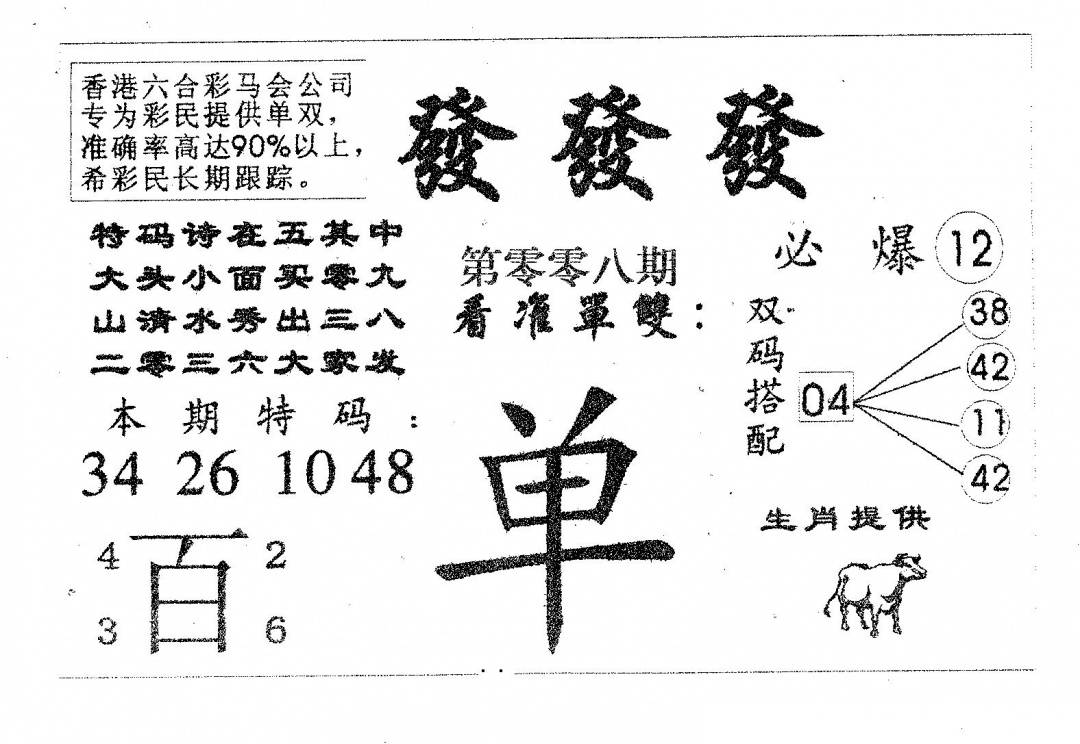 香港六合彩马会公司
专为彩民提供单双，
准确率高达90%以上，
希彩民长期跟踪。
發發發
特码诗在五其中
大头小面买零九
山清水秀出三八
二零三六大家发
第零零八期
看准單雙：
必爆 12
双码搭配
04
38
42
11
42
本期特码：
34 26 10 48
单
生肖提供
4 百 2
3 6